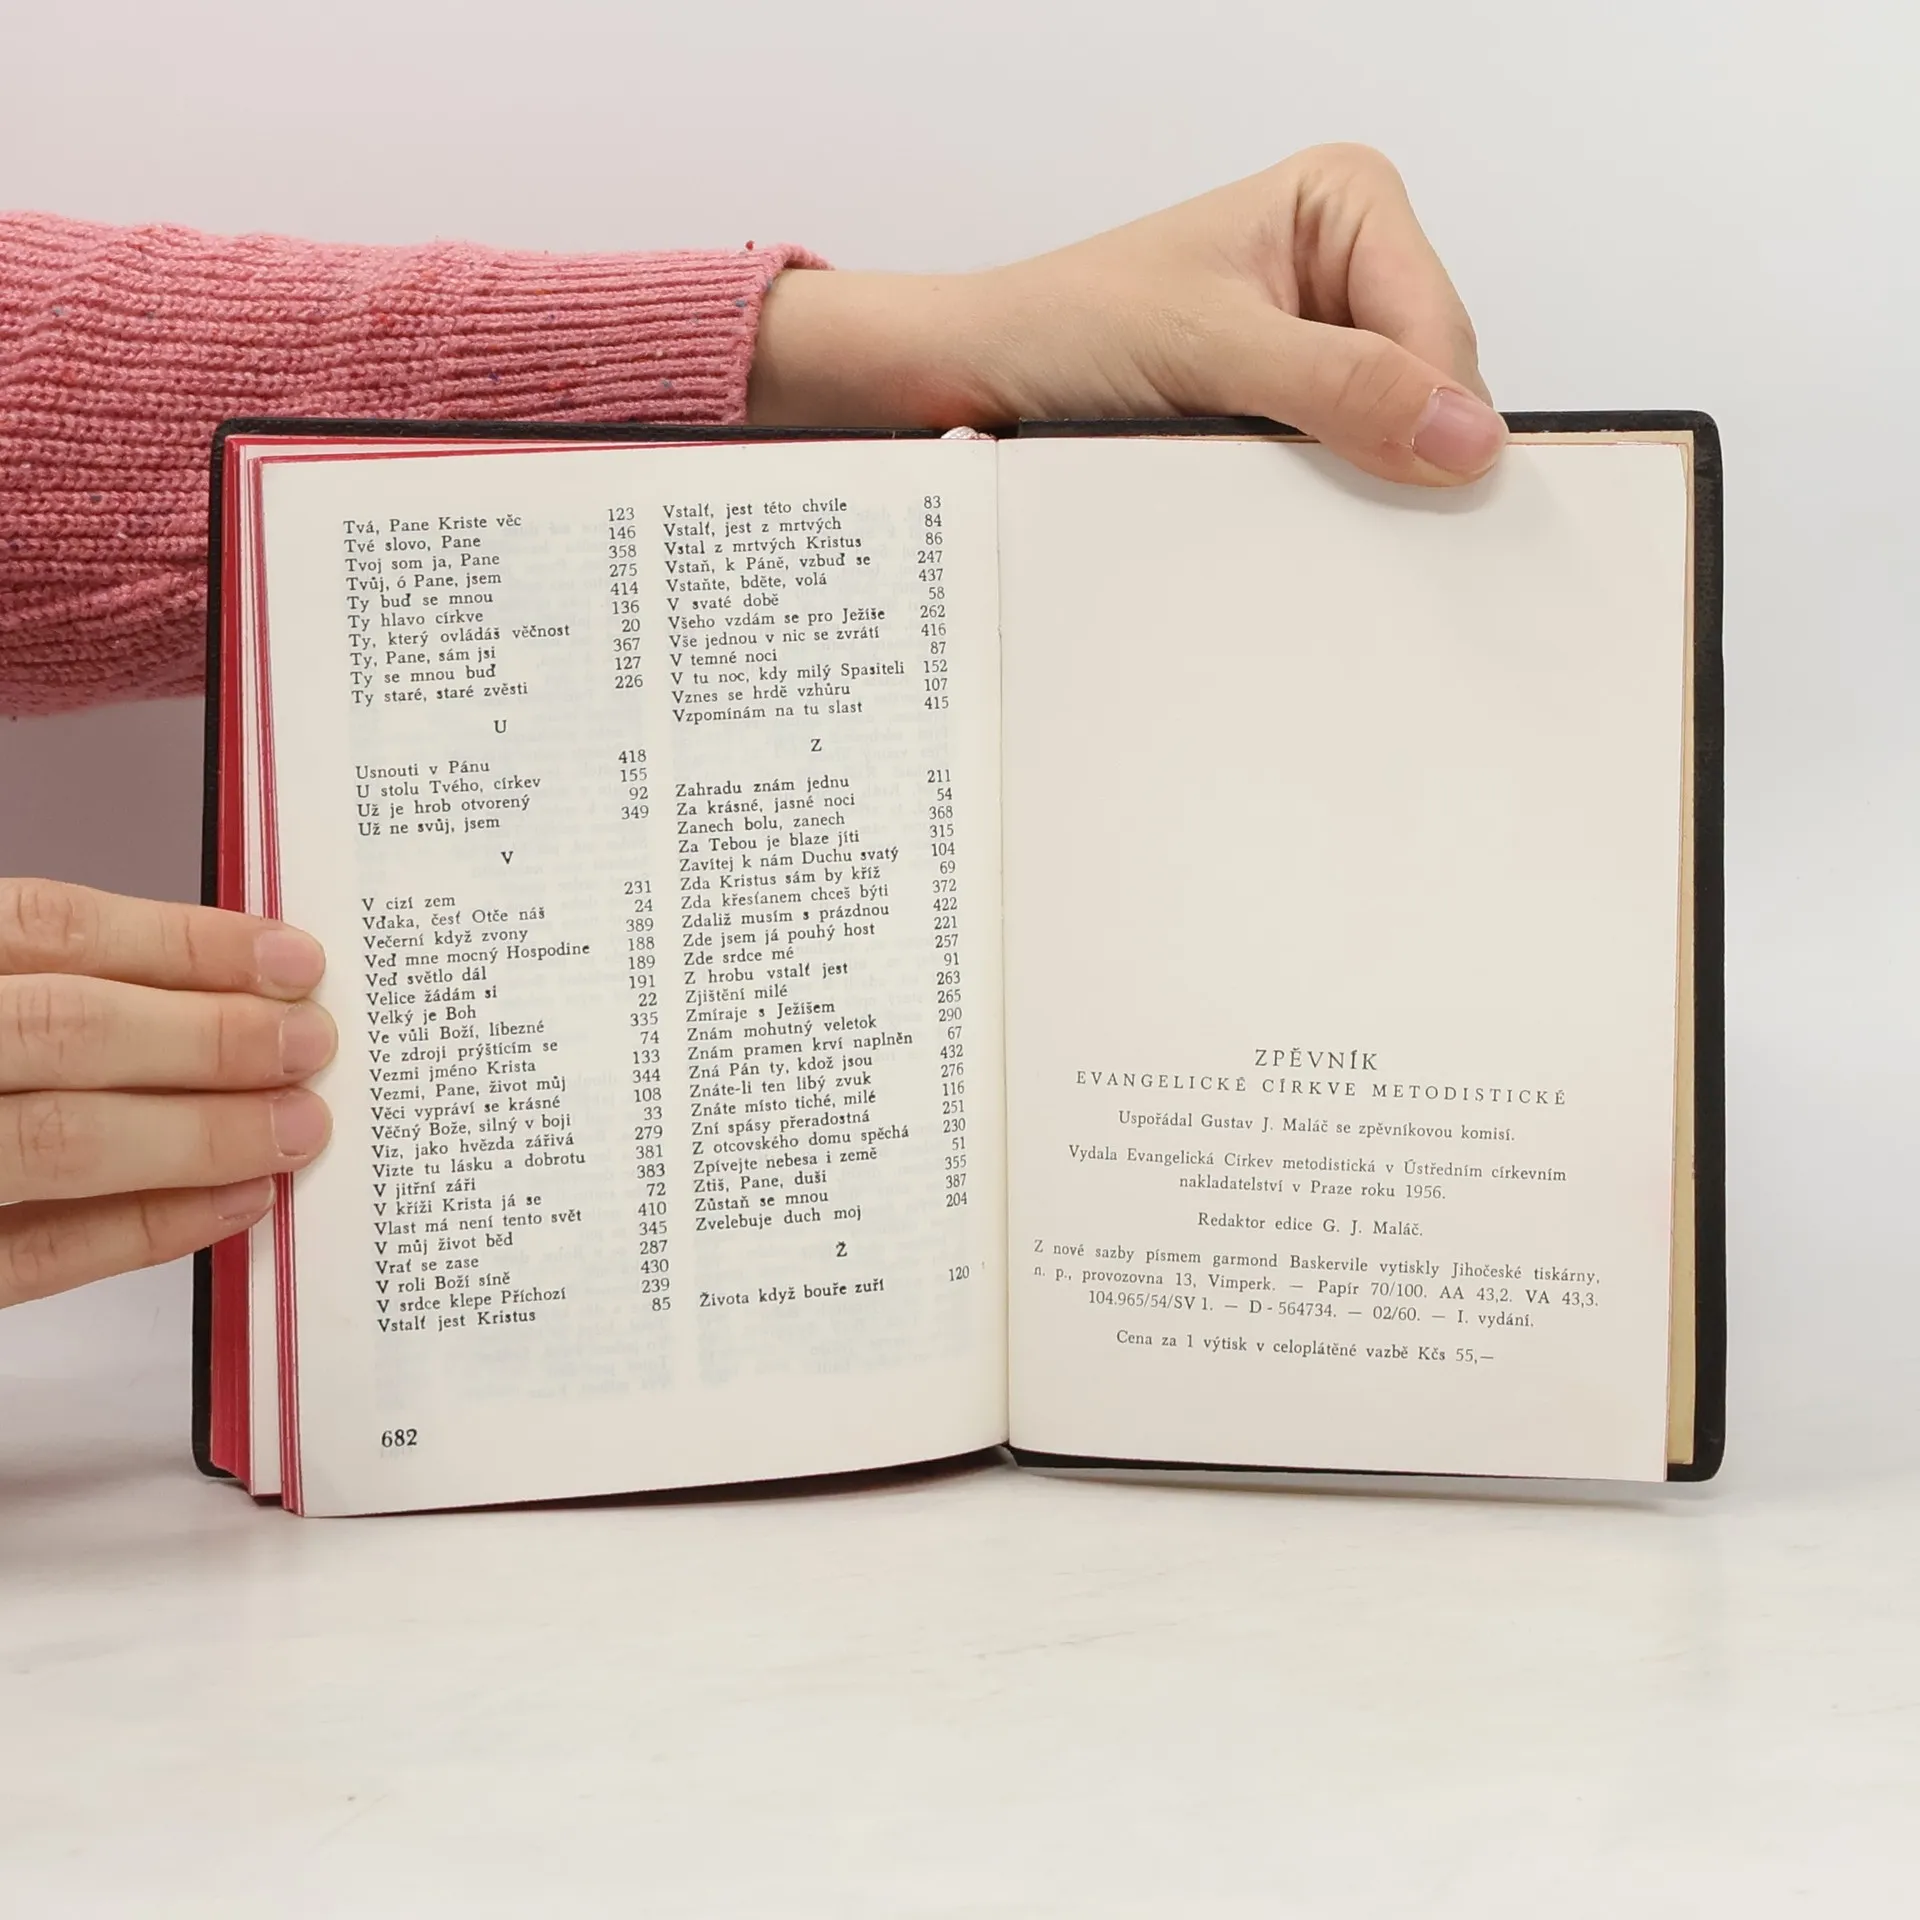 Tvá, Pane Kriste věc 123
Tvé slovo, Pane 146
Tvoj som ja, Pane 358
Tvůj, ó Pane, jsem 275
Ty buď se mnou 414
Ty hlavo církve 136
Ty, který ovládáš věčnost 20
Ty, Pane, sám jsi 367
Ty se mnou buď 127
Ty staré, staré zvěsti 226
U
Usnouti v Pánu 418
U stolu Tvého, církev 155
Už je hrob otvorený 92
Už ne svůj, jsem 349
V
V cizí zem 231
Vďaka, česť Otče náš 24
Večerní když zvony 389
Veď mne mocný Hospodine 188
Veď světlo dál 189
Velice žádám si 191
Velký je Boh 22
Ve vůli Boží, líbezné 335
Ve zdroji prýštícím se 74
Vezmi jméno Krista 133
Vezmi, Pane, život můj 344
Věci vypráví se krásné 108
Věčný Bože, silný v boji 33
Viz, jako hvězda zářivá 279
Vizte tu lásku a dobrotu 381
V jitřní záři 383
V kříži Krista já se 72
Vlast má není tento svět 410
V můj život běd 345
Vrať se zase 287
V roli Boží síně 430
V srdce klepe Příchozí 239
Vstalť jest Kristus 85
682
Vstalť, jest této chvíle 83
Vstalť, jest z mrtvých 84
Vstal z mrtvých Kristus 86
Vstaň, k Páně, vzbuď se 247
Vstaňte, bděte, volá 437
V svaté době 58
Všeho vzdám se pro Ježíše 262
Vše jednou v nic se zvrátí 416
V temné noci 87
V tu noc, kdy milý Spasiteli 152
Vznes se hrdě vzhůru 107
Vzpomínám na tu slast 415
Z
Zahradu znám jednu 211
Za krásné, jasné noci 54
Zanech bolu, zanech 368
Za Tebou je blaze jíti 315
Zavítej k nám Duchu svatý 104
Zda Kristus sám by kříž 69
Zda křesťanem chceš býti 372
Zdaliž musím s prázdnou 422
Zde jsem já pouhý host 221
Zde srdce mé 257
Z hrobu vstalť jest 91
Zjištění milé 263
Zmíraje s Ježíšem 265
Znám mohutný veletok 290
Znám pramen krví naplněn 67
Zná Pán ty, kdož jsou 432
Znáte-li ten libý zvuk 276
Znáte místo tiché, milé 116
Zní spásy přeradostná 251
Z otcovského domu spěchá 230
Zpívejte nebesa i země 51
Ztiš, Pane, duši 355
Zůstaň se mnou 387
Zvelebuje duch moj 204
Ž
Života když bouře zuří 120
ZPĚVNÍK
EVANGELICKÉ CÍRKVE METODISTICKÉ
Uspořádal Gustav J. Maláč se zpěvníkovou komisí.
Vydala Evangelická Církev metodistická v Ústředním církevním
nakladatelství v Praze roku 1956.
Redaktor edice G. J. Maláč.
Z nové sazby písmem garmond Baskervile vytiskly Jihočeské tiskárny,
n. p., provozovna 13, Vimperk. — Papír 70/100. AA 43,2. VA 43,3.
104.965/54/SV 1. — D - 564734. — 02/60. — I. vydání.
Cena za 1 výtisk v celoplátěné vazbě Kčs 55,—